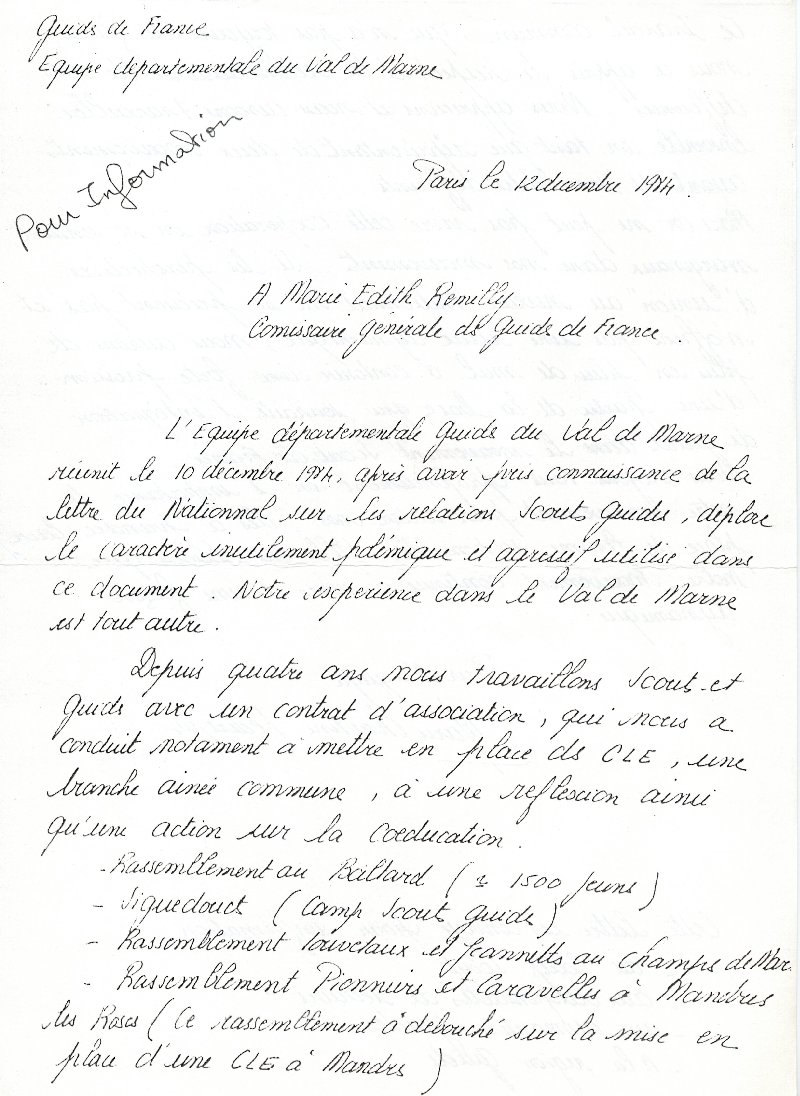 Guides de France
Equipe départementale du Val de Marne
Pour Information
Paris le 12 décembre 1984.
A Marie Edith Remilly
Comissaire Générale des Guides de France.
L'Equipe départementale Guides du Val de Marne
réunit le 10 décembre 1984, après avoir pris connaissance de la
lettre du Nationnal sur les relations Scouts Guides, déplore
le caractère inutilement polémique et agressif utilisé dans
ce document. Notre experience dans le Val de Marne
est tout autre.
Depuis quatre ans nous travaillons Scout et
Guides avec un contrat d'association, qui nous a
conduit notament à mettre en place des CLE, une
branche ainée commune, à une reflexion ainsi
qu'une action sur la coéducation.
- Rassemblement au (± 1500 jeunes)
- (Camp Scout Guide)
- Rassemblement louvetaux et Jeannettes au Champs de Mar
- Rassemblement Pionniers et Caravelles à Mandres
les Roses (Ce rassemblement à débouché sur la mise en
place d'une CLE à Mandres)